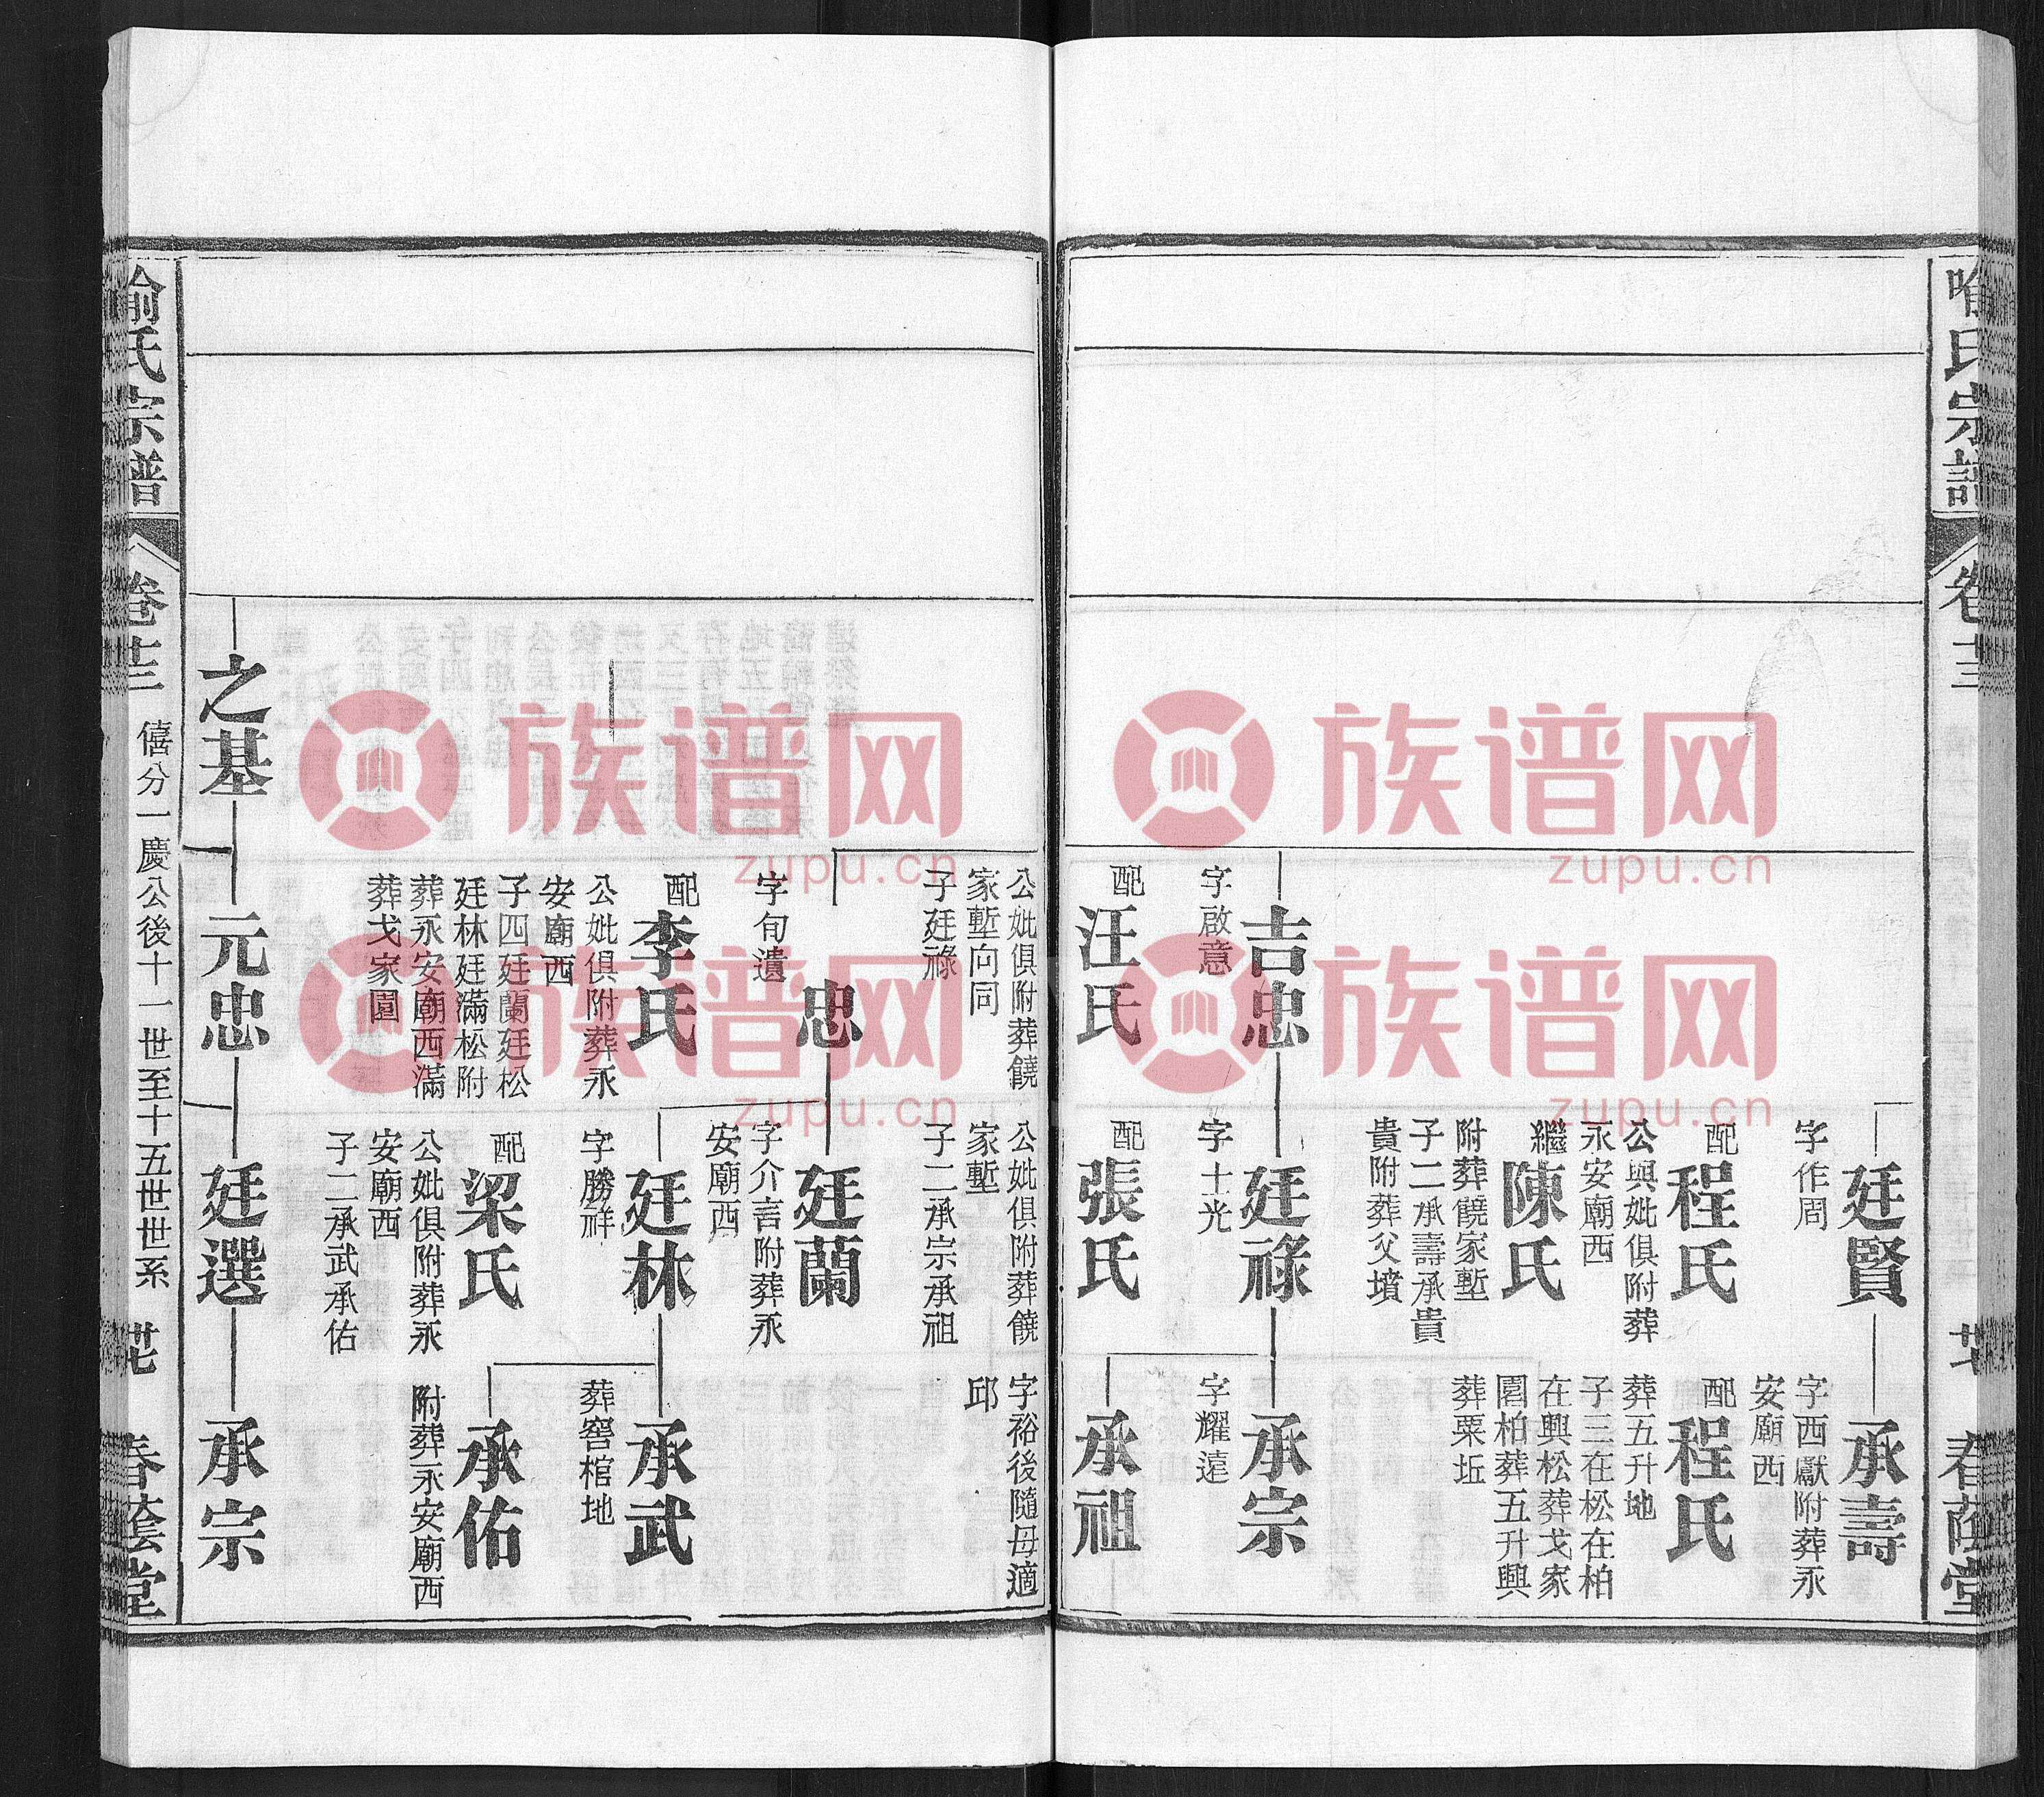 喻氏宗譜
卷廿三
廿七
春蔭堂
廷賢
字作周
配程氏
公與妣俱附葬
永安廟西
繼陳氏
附葬饒家塹
子二承壽承貴
貴附葬父墳
承壽
字西獻附葬永
安廟西
配程氏
葬五升地
子三在松在柏
在興松葬戈家
園柏葬五升興
葬粟坵
吉忠
字啟意
配汪氏
廷祿
字士光
配張氏
承宗
字耀遠
承祖
公妣俱附葬饒
家塹向同
子廷祿
公妣俱附葬饒
家塹
子二承宗承祖
字裕後隨母適
邱
忠
字旬遺
配李氏
公妣俱附葬永
安廟西
子四廷蘭廷松
廷林廷滿松附
葬永安廟西滿
葬戈家園
廷蘭
字介言附葬永
安廟西
廷林
字勝祥
配梁氏
公妣俱附葬永
安廟西
子二承武承佑
承武
葬窖棺地
承佑
附葬永安廟西
之基
元忠
廷選
承宗
喻氏宗譜
卷廿三
僖分一慶公後十一世至十五世世系
廿七
春蔭堂
族谱网
zupu.cn
族谱网
zupu.cn
族谱网
zupu.cn
族谱网
zupu.cn